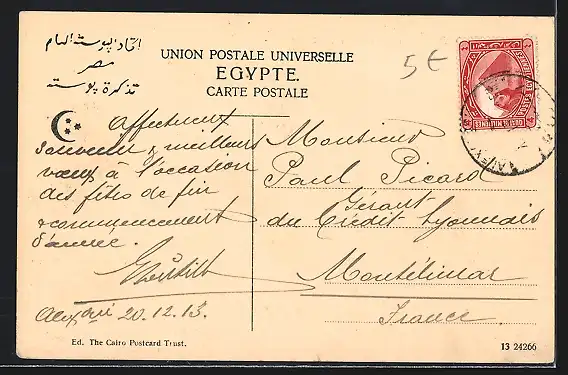 اتحاد البوسته العام
مصر
تذكرة بوسته
UNION POSTALE UNIVERSELLE
EGYPTE.
CARTE POSTALE
5€
affectueux
souvenir & meilleurs
vœux à l'occasion
des fêtes de fin
& commencement
d'année.
Alex 20.12.13.
Monsieur
Paul Picard
Gérant
du Crédit Lyonnais
Montélimar
France
Ed. The Cairo Postcard Trust.
13 24266